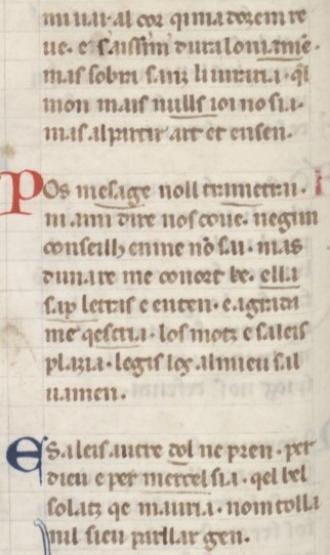 mi uai · al cor qima dozem re
ue · e saissim dura loniamē ·
mas sobri sanz li uirria · qel
mon mais nulls ioi no sia ·
mas al partir art et ensen ·
Pos mesage noll trametrn ·
ni ami dire nos coue · negun
conseill enme nō sai · mas
dunare me conort be · ella
sap letras e enten · e agrada
me qescria · los motz e saleis
plazia · legis los al mieu sal
uamen ·
E saleis autre dol ne pren · per
dieu e per merce lsia · qel bel
solatz qe mauria · nom tolla
nil sieu parllar gen ·